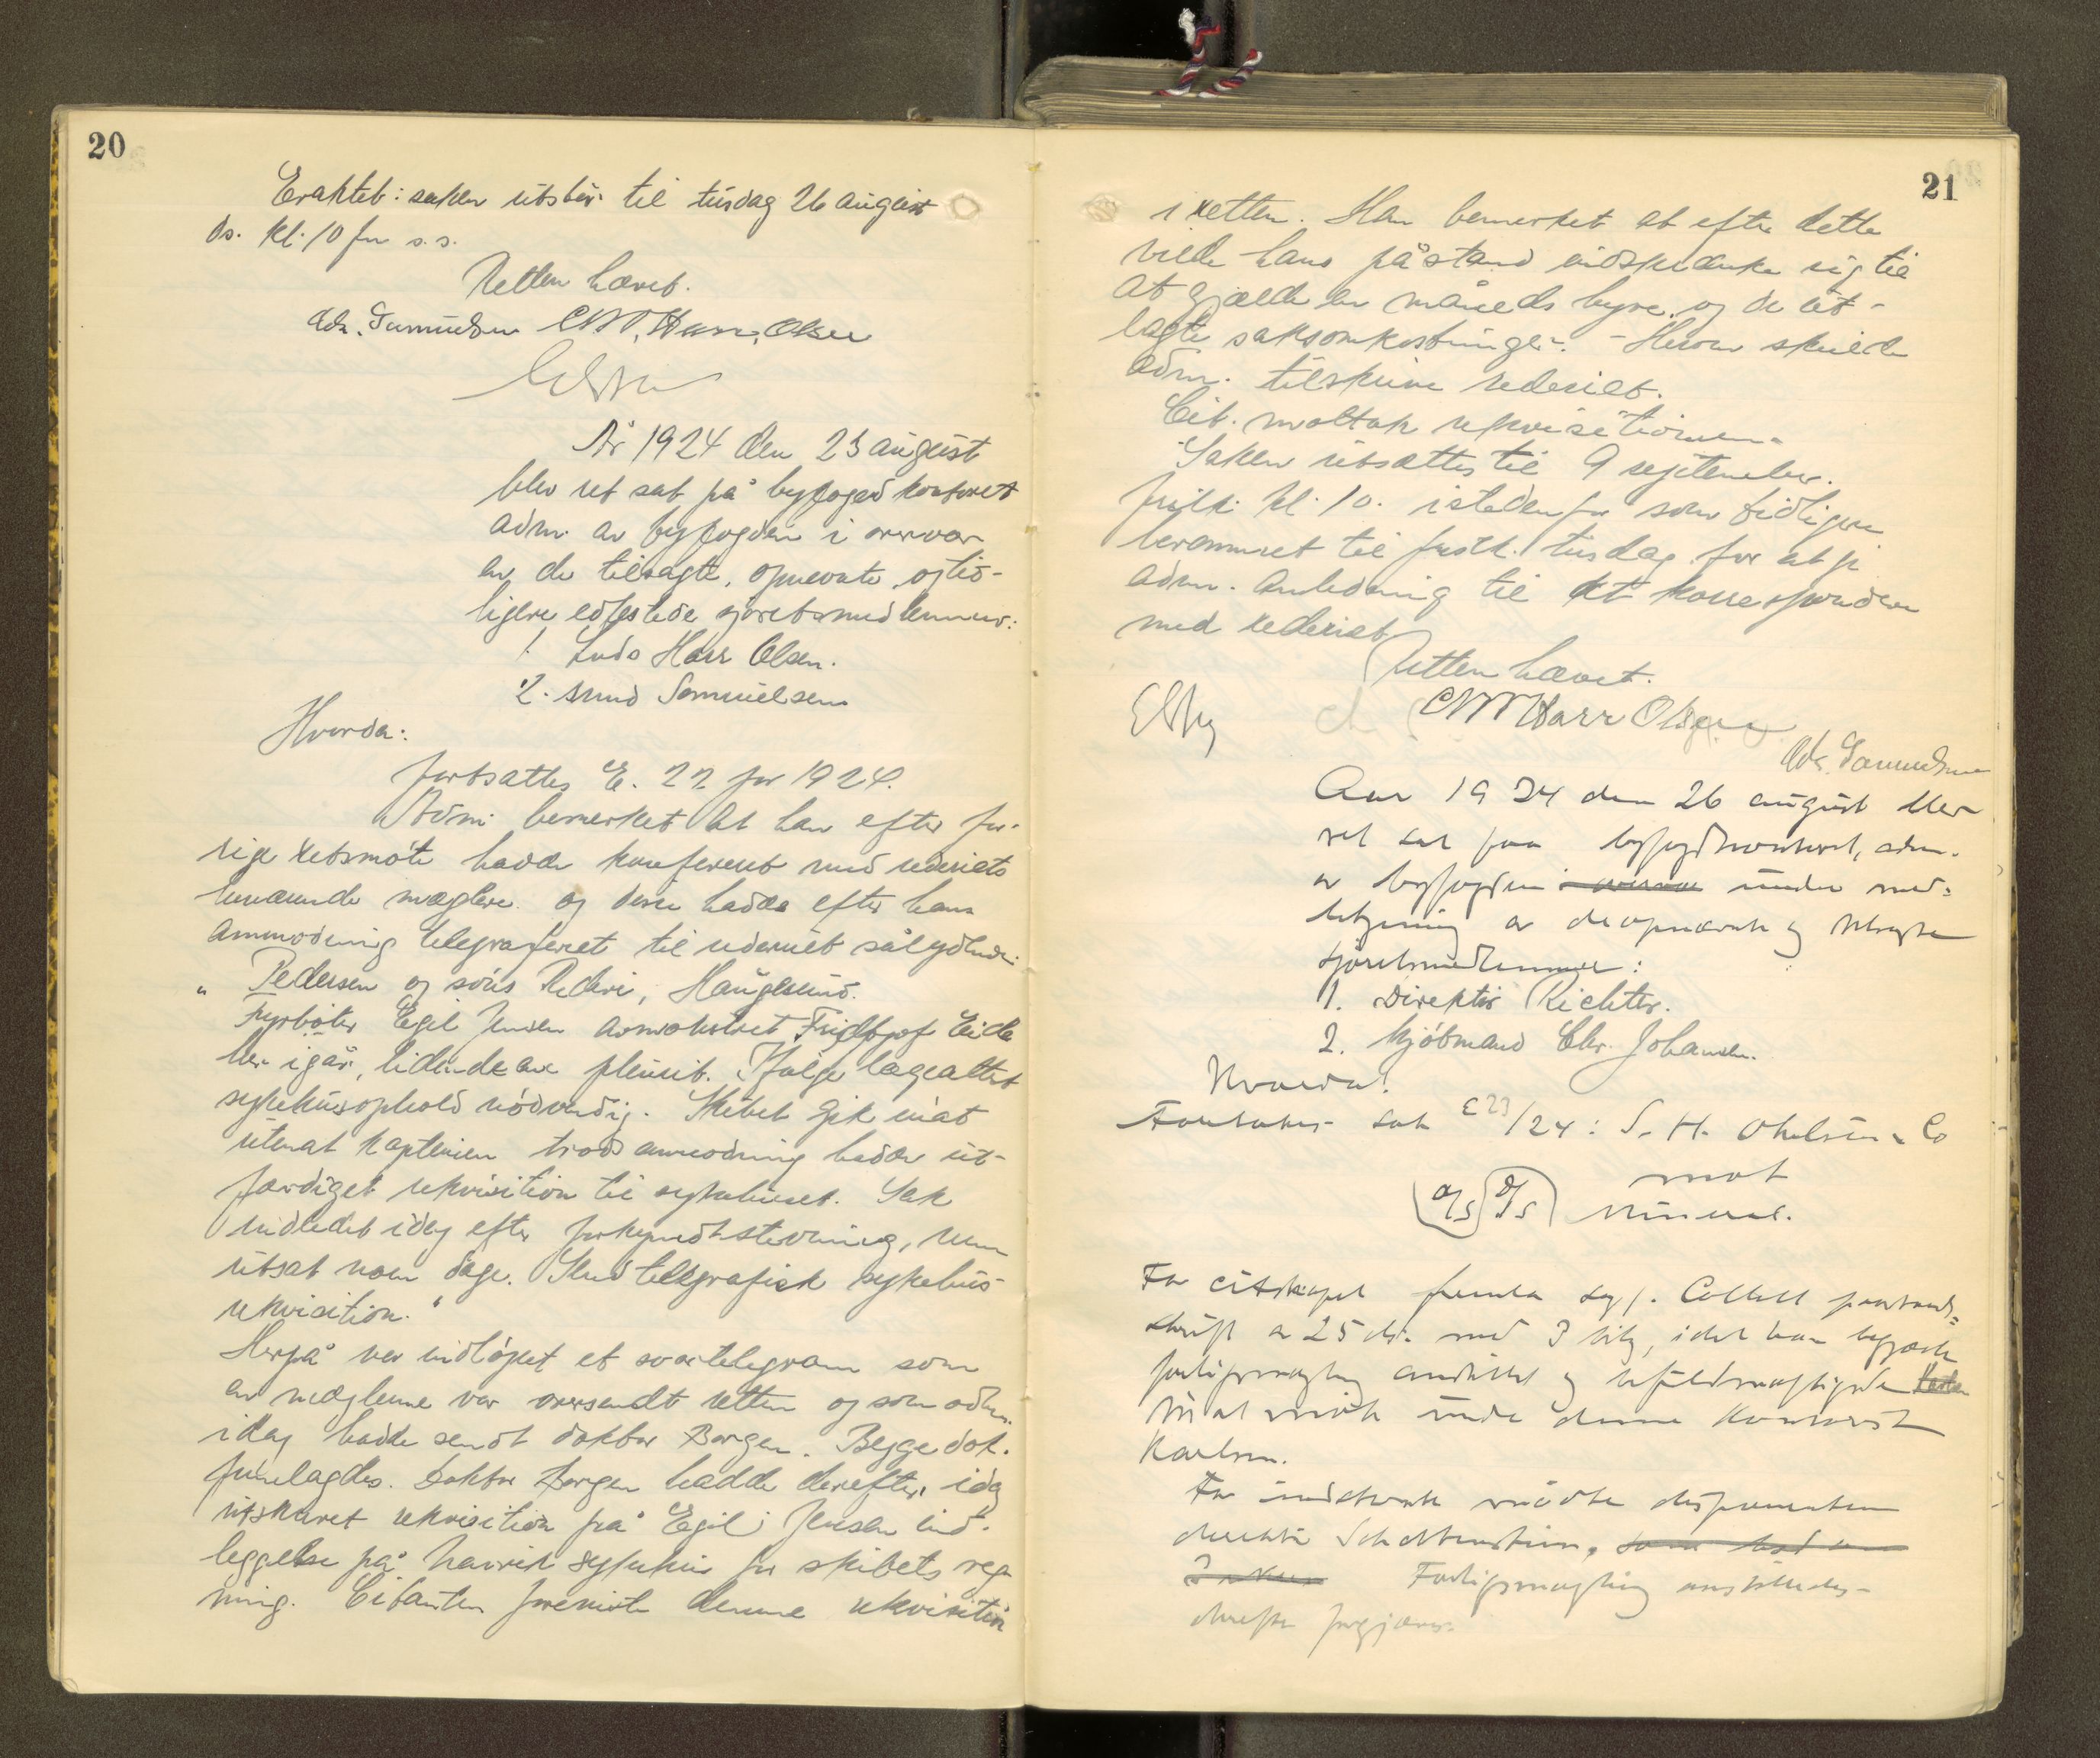 20
Eraktet: saken utsbur til tirsdag 26 august
ds. kl. 10 fm s.s.
Retten hævet.
Adr. Samuelsen CMT. Harr. Olsen
År 1924 den 23 august
blev ret sat på byfogedkontoret
adm. av byfogden i overvær
av de tilsagte, opnevnte og tid-
ligere edfestede sjøretsmedlemmer:
1. Ludv Harr Olsen.
2. Amd Samuelsen
Hvorda:
fortsattes E. 22 for 1924.
Adm. bemerket at han efter for-
rige retsmøte hadde konferert med rederiets
herværende mæglere og disse hadde efter hans
anmodning telegraferet til rederiet sålydende:
" Pedersen og søns Rederi, Haugesund.
Fyrbøter Egil Jensen avmønstret Fridtjof Eide
her igår, lidende av pleurit. Ifølge lægeattest
sykehusophold nødvendig. Skibet gik inat
uten at kapteinen trods anmodning hadde ut-
færdiget rekvisition til sykehuset. Sak
indledet idag efter forkyndt stevning, men
utsat noen dage. Send telegrafisk sykehus-
rekvisition."
Herpå var indløpet et svartelegram som
av mæglerne var oversendt retten og som adm.
idag hadde sendt doktor Borgen. Begge dok.
fremlagdes. Doktor Borgen hadde derefter idag
utskrevet rekvisition på Egil Jensen ind-
leggelse på Narvik sykehus for skibets reg-
ning. Citanten foreviste denne rekvisition
21
i retten. Han bemerket at efter dette
vilde hans påstand indskrænke sig til
at gjælde en måneds hyre og de ut-
lagte saksomkostninger. - Herom skulde
adm. tilskrive rederiet.
Cit. mottok rekvisitionen.
Saken utsættes til 9 september.
førstk. kl. 10. istedenfor som tidligere
berammet til førstk. tirsdag for at gi
adm. anledning til at korrespondere
med rederiet
Retten hævet.
CMT Harr Olsen
Adr. Samuelsen
Aar 1924 den 26 august blev
ret sat paa byfogdkontoret, adm.
av byfogden under med-
betjening av de opnævnte og tilsagte
sjøretsmedlemmer:
1. Direktør Richter.
2. Kjøbmand Chr. Johansen.
Hvorda:
Foretokes sak E 23/24: S. H. Ohelsen & Co
mot
A/S D/S Mineral.
For citskapet fremla sgf. Collett paastands-
skrift av 25 ds. med 3 bilag, idet han begjærte
forliksmægling anstillet og befuldmægtigede
til at møte under denne kontorist
Karlsen.
For indstevnte møtte disponenten
direktør
Forliksmægling anstilledes-
derefter forgjæves.